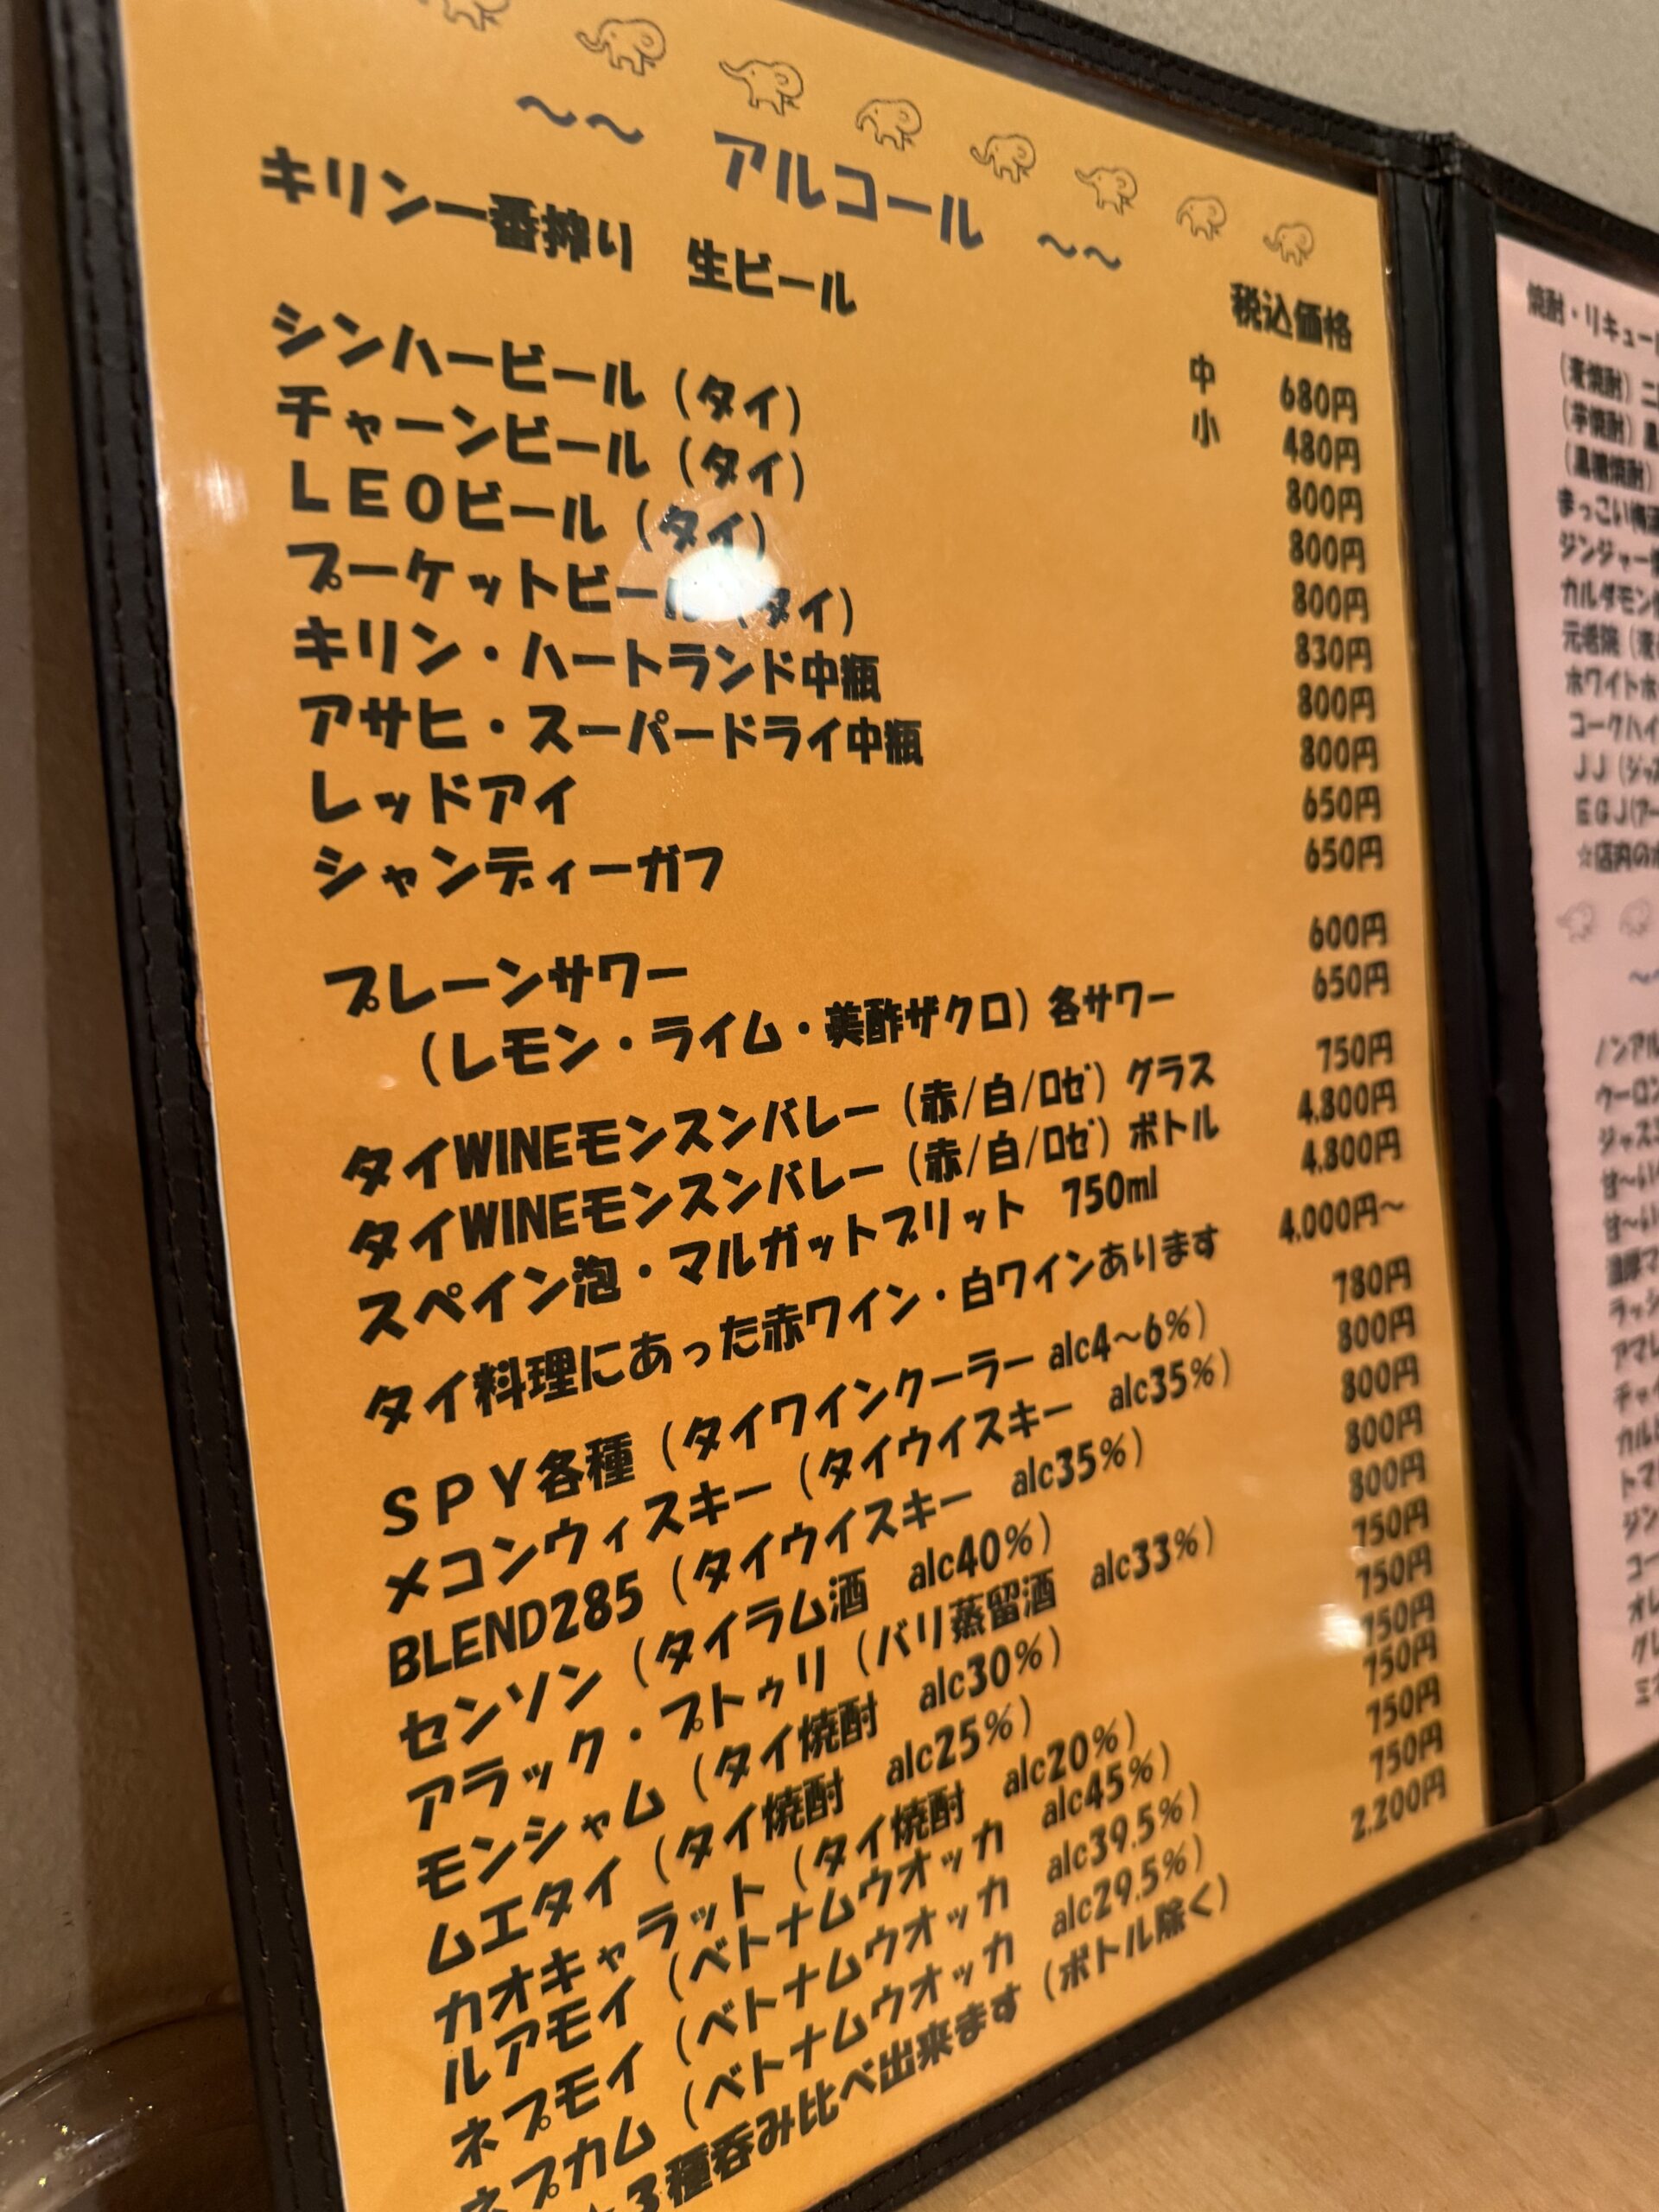 ～～ アルコール ～～
税込価格
キリン一番搾り 生ビール
中 680円
小 480円
シンハービール（タイ） 800円
チャーンビール（タイ） 800円
ＬＥＯビール（タイ） 800円
プーケットビール（タイ） 830円
キリン・ハートランド中瓶 800円
アサヒ・スーパードライ中瓶 800円
レッドアイ 650円
シャンディーガフ 650円
プレーンサワー 600円
（レモン・ライム・美酢ザクロ）各サワー 650円
タイWINEモンスンバレー（赤/白/ロゼ）グラス 750円
タイWINEモンスンバレー（赤/白/ロゼ）ボトル 4,800円
スペイン泡・マルガットブリット 750ml 4,800円
タイ料理にあった赤ワイン・白ワインあります 4,000円～
ＳＰＹ各種（タイワインクーラー alc4～6%） 780円
メコンウィスキー（タイウイスキー alc35%） 800円
BLEND285（タイウイスキー alc35%） 800円
センソン（タイラム酒 alc40%） 800円
アラック・プトゥリ（バリ蒸留酒 alc33%） 800円
モンシャム（タイ焼酎 alc30%） 750円
ムエタイ（タイ焼酎 alc25%） 750円
カオキャラット（タイ焼酎 alc20%） 750円
ルアモイ（ベトナムウオッカ alc45%） 750円
ネプモイ（ベトナムウオッカ alc39.5%） 750円
ネプカム（ベトナムウオッカ alc29.5%） 750円
☆３種呑み比べ出来ます（ボトル除く） 2,200円
焼酎・リキュー
（麦焼酎）二
（芋焼酎）
（黒糖焼酎）
まっこい梅酒
ジンジャー
カルダモン
元老院（麦
ホワイトホ
コークハイ
ＪＪ（ジャス
ＥＧＪ(アー
☆店内の
～
ノンアル
クーロン
ジャスミ
甘～い
甘～い
濃厚マ
ラッシ
アマレ
チャイ
カルピ
トマト
ジン
コー
オレ
グレ
ミネ